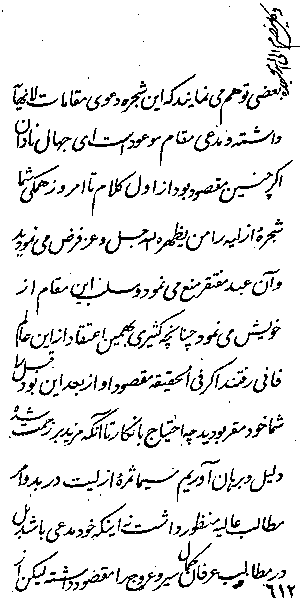 بعضی توهم می نمایند که این شجره دعوی مقامات لا نهایه
داشته و مدعی مقام موعود است ای جهال نادان
اگر چنین مقصود بود از اول کلام تا امروز همگی شما
شجرهٔ ازلیه را من یظهره الله جل و عز فرض می نمودید
و آن عبد مفتقر منع می نمود و سلب این مقام از
خویش می نمود چنانچه کثیری بهمین اعتقاد از این عالم
فانی رفتند اگر فی الحقیقه مقصود او از بعد این بود قبل
شما خود مقر بودید چه احتیاج بانکار تا آنکه مزید بر
دلیل و برهان آوریم سیما ثمرهٔ ازلیت در بدو امر
مطالب عالیه منظور داشت نه اینکه خود مدعی باشد بل
در مطالب عرفان کمال سیر و عروج را مقصود داشته لیکن از
٦١٢